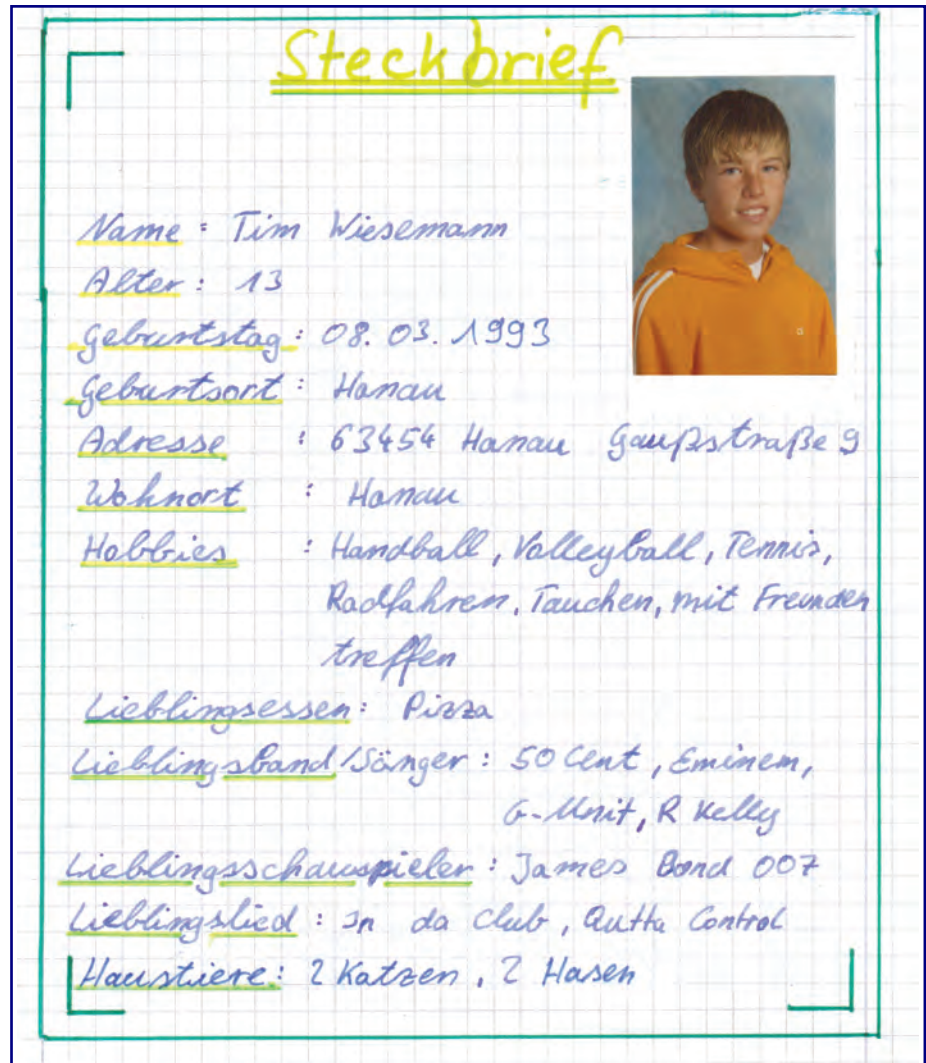 Steckbrief
Name : Tim Wiesemann
Alter : 13
Geburtstag : 08. 03. 1993
Geburtsort : Hanau
Adresse : 63454 Hanau Gaußstraße 9
Wohnort : Hanau
Hobbies : Handball, Volleyball, Tennis,
Radfahren, Tauchen, mit Freunden
treffen
Lieblingsessen : Pizza
Lieblingsband/Sänger : 50 Cent, Eminem,
G-Unit, R Kelly
Lieblingsschauspieler : James Bond 007
Lieblingslied : In da Club, Outta Control
Haustiere : 2 Katzen, 2 Hasen